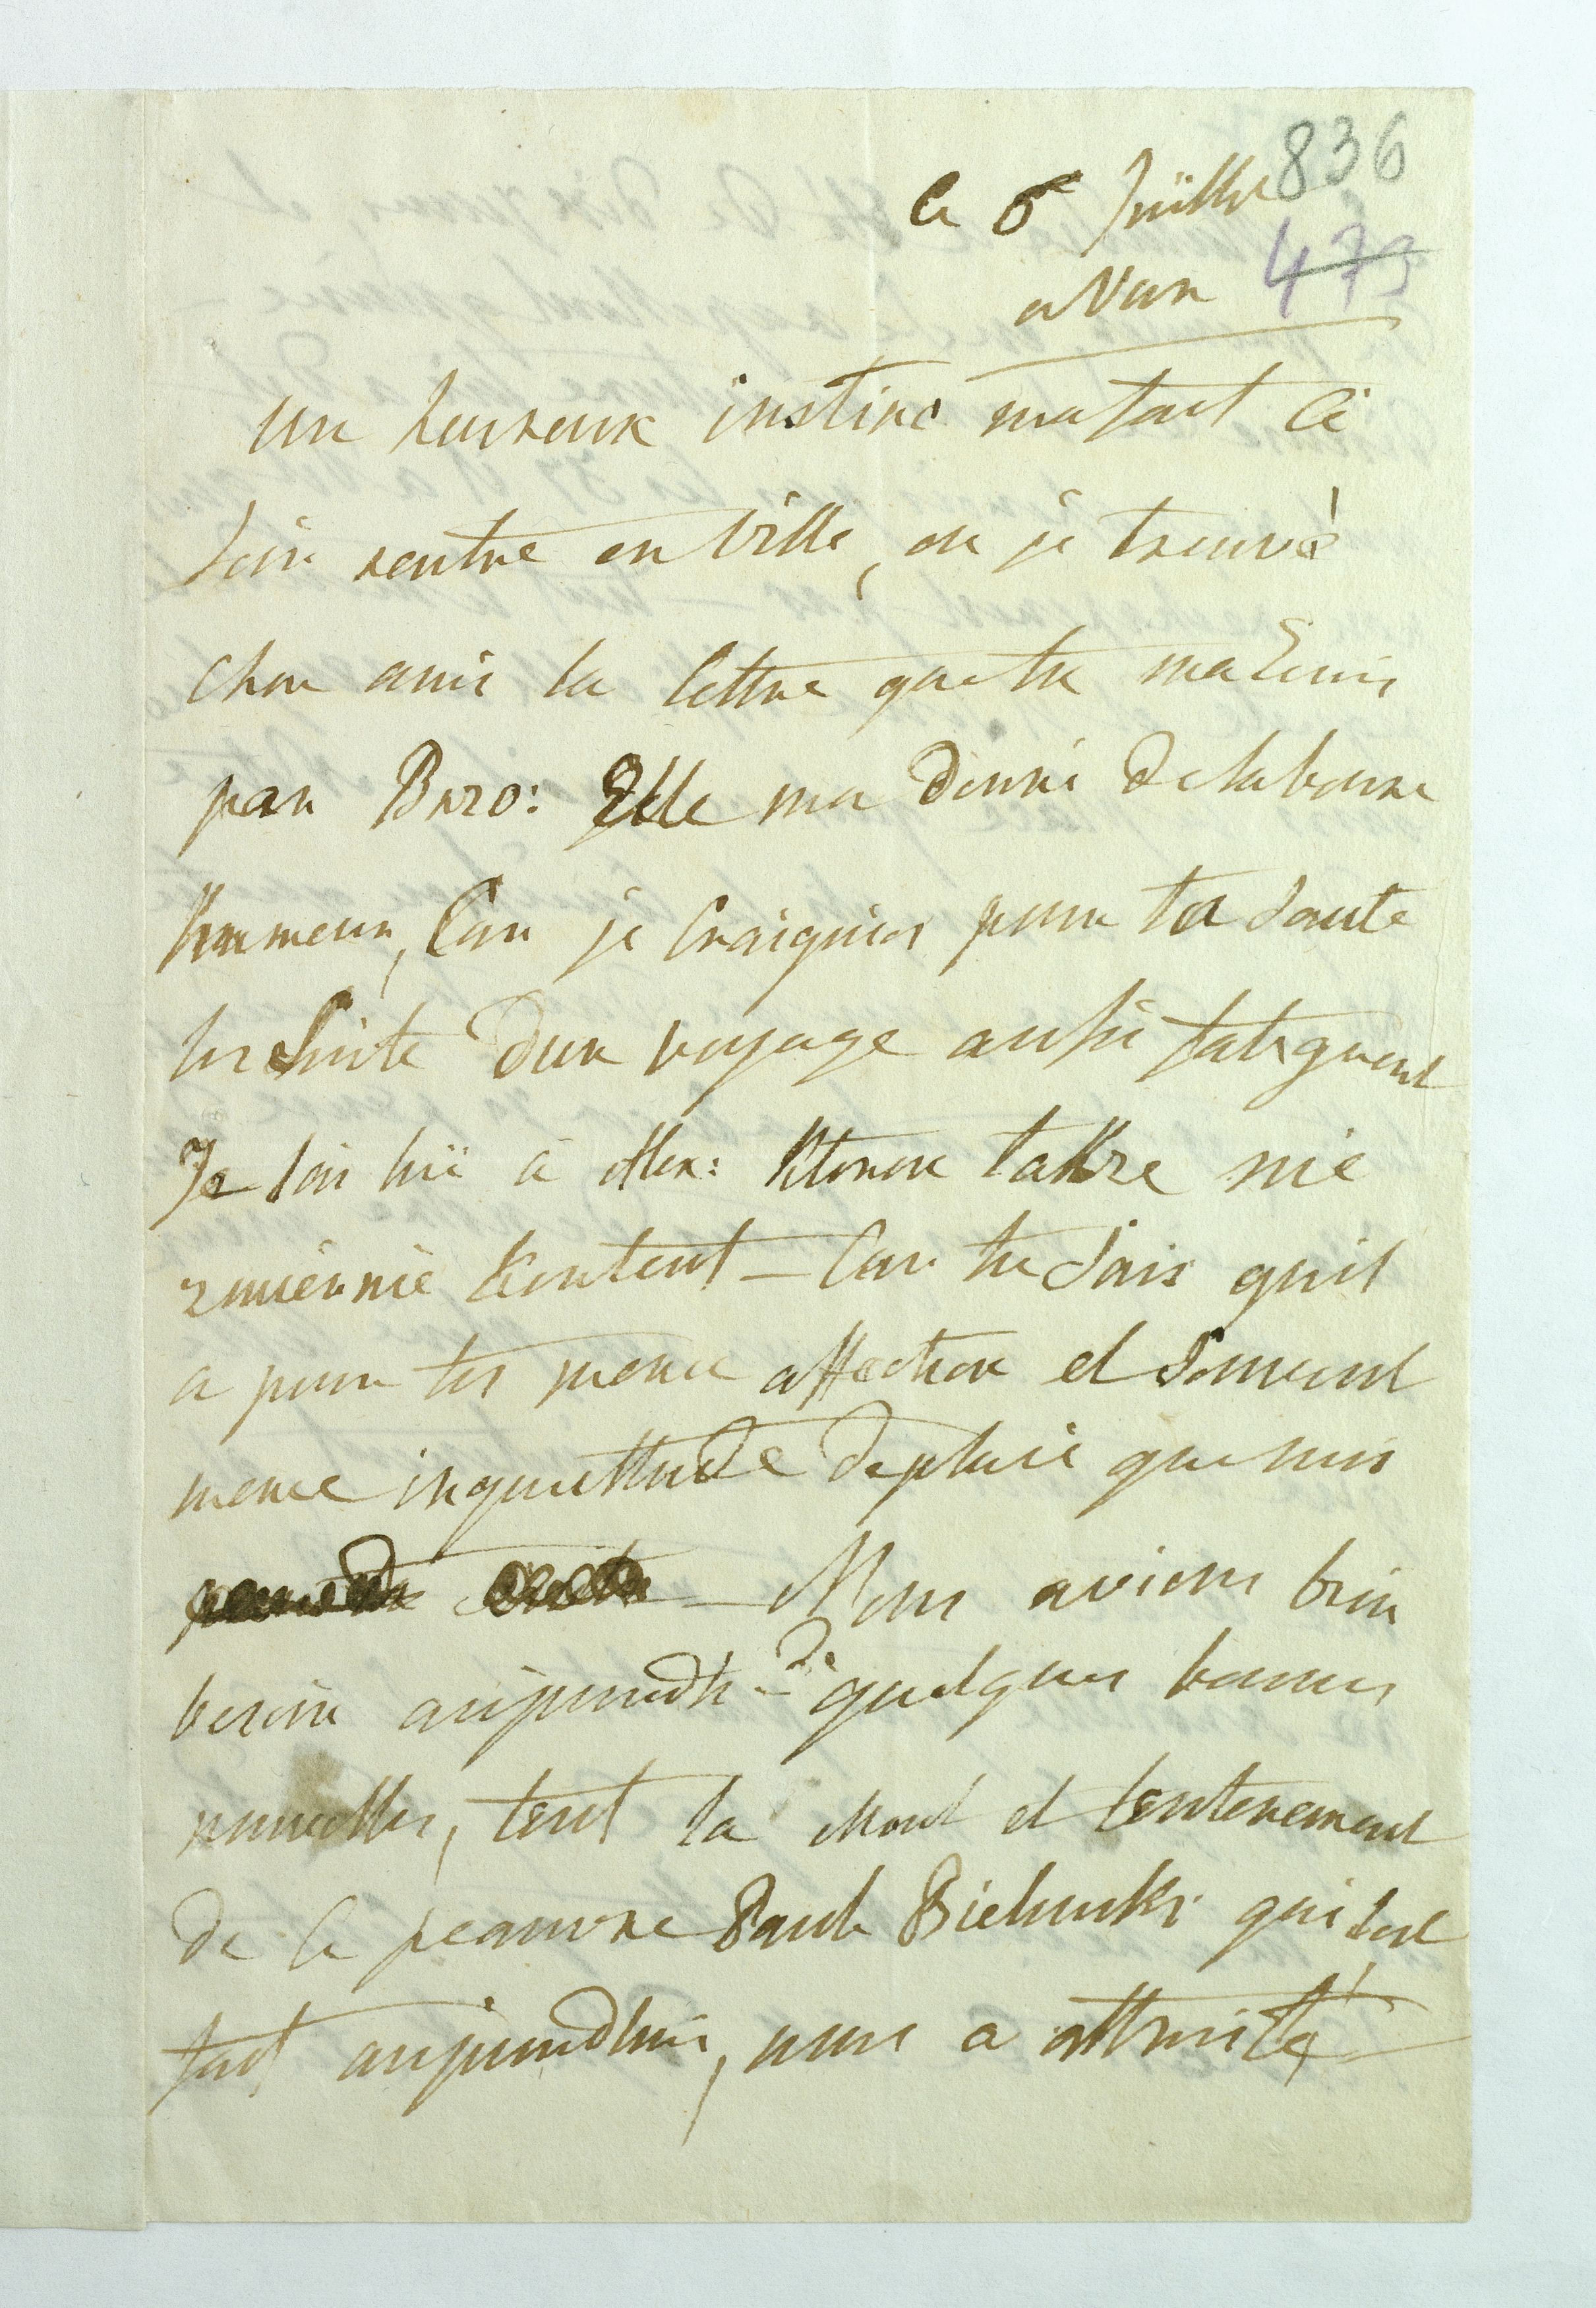 836
le 5 Juillet
a Var 479
un heureux instinc ma fait ce
soir rentre en ville, ou je trouvè
cher ami la lettre que tu ma ecris
par Brzo: Elle ma donné de la bonne
hummeur, Car je craignier pour ta sante
la Suite dun voyage aussi fatiguent
Je lai lu à Alex: Ktoren takze nie
zmiernie kontent – Car tu sais quil
a pour toi meme affection et souvent
meme inquiettude de plus que moi
– Nous avions bien
besoin aujourdh. di quelques bonnes
nouvelles, tent la Mort et lenterement
de ce peauvre Paul Bielinski qui sest
fait aujourdhui, nous a attristé